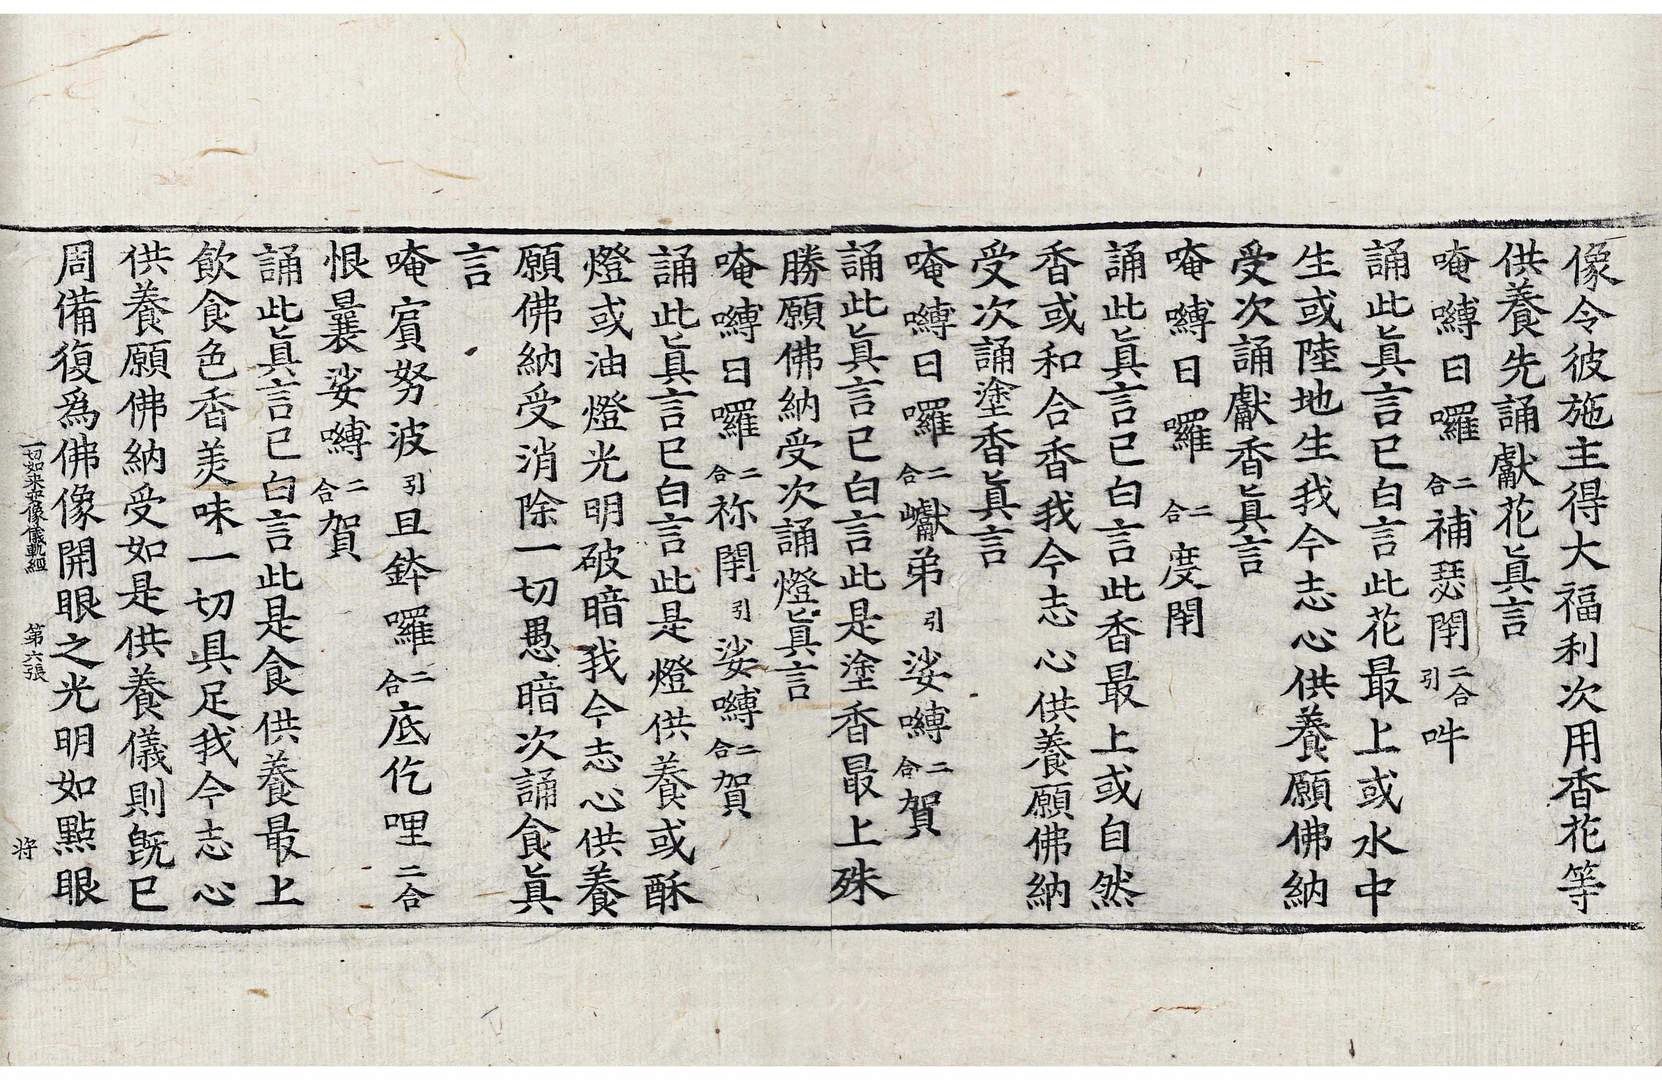 像令彼施主得大福利次用香花等
供養先誦獻花眞言
唵嚩日囉二合補瑟閇二合引吽
誦此眞言已白言此花最上或水中
生或陸地生我今志心供養願佛納
受次誦獻香眞言
唵嚩日囉二合度閇
誦此眞言已白言此香最上或自然
香或和合香我今志心供養願佛納
受次誦塗香眞言
唵嚩日囉二合巘弟引娑嚩二合賀
誦此眞言已白言此是塗香最上殊
勝願佛納受次誦燈眞言
唵嚩日囉二合祢閇引娑嚩二合賀
誦此眞言已白言此是燈供養或酥
燈或油燈光明破暗我今志心供養
願佛納受消除一切愚暗次誦食眞
言
唵賔努波引且鉢囉二合底仡哩二合
恨曩娑嚩二合賀
誦此眞言已白言此是食供養最上
飲食色香美味一切具足我今志心
供養願佛納受如是供養儀則旣已
周備復爲佛像開眼之光明如點眼
一切如来安像儀軌經　第六張　将